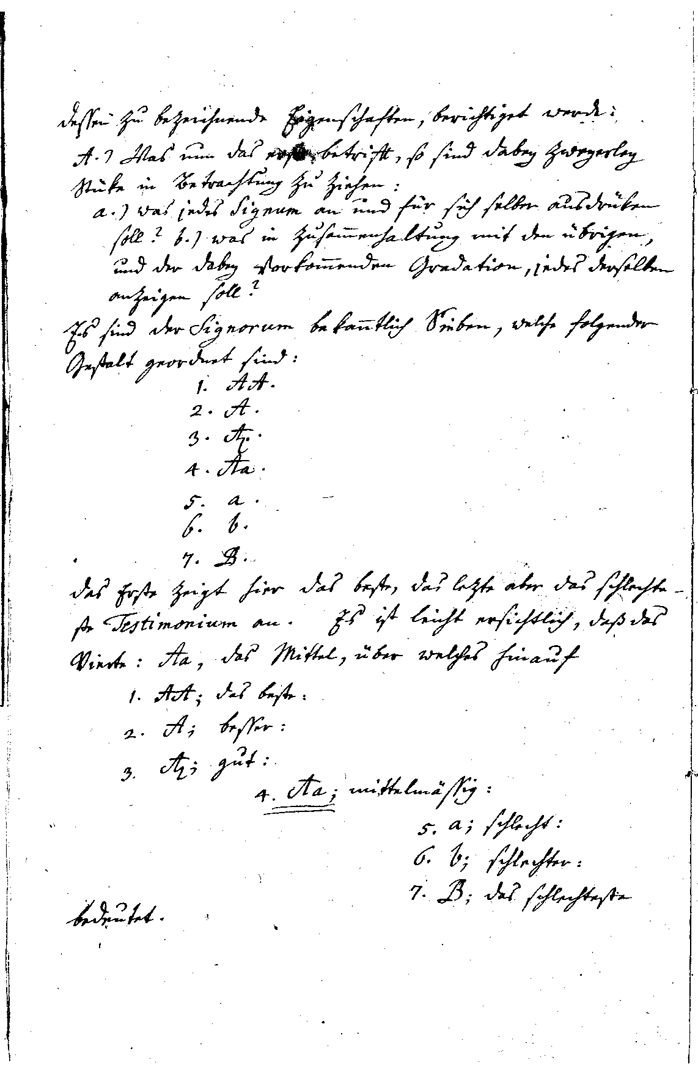 dessen zu bezeichnende Eigenschaften, berichtiget werde:
A.) Was nun das erste betrifft, so sind dabey zweyerley
Stüke in Betrachtung zu ziehen:
a.) was jedes Signum an und für sich selber ausdrüken
soll? b.) was in Zusam̅enhaltung mit den übrigen,
und der dabey vorkom̅enden Gradation, jedes derselben
anzeigen soll?
Es sind der Signorum bekan̅tlich Sieben, welche folgender
Gestalt geordnet sind:
1. AA.
2. A.
3. A
4. Aa.
5. a.
6. b.
7. B.
das Erste zeigt hier das beste, das letzte aber das schlechte-
ste Testimonium an. Es ist leicht ersichtlich, daß das
Vierte: Aa, das Mittel, über welches hinauf
1. AA; das beste:
2. A; besser:
3. A; gut:
4. Aa; mittelmässig:
5. a; schlecht:
6. b; schlechter:
7. B; das schlechteste
bedeutet.